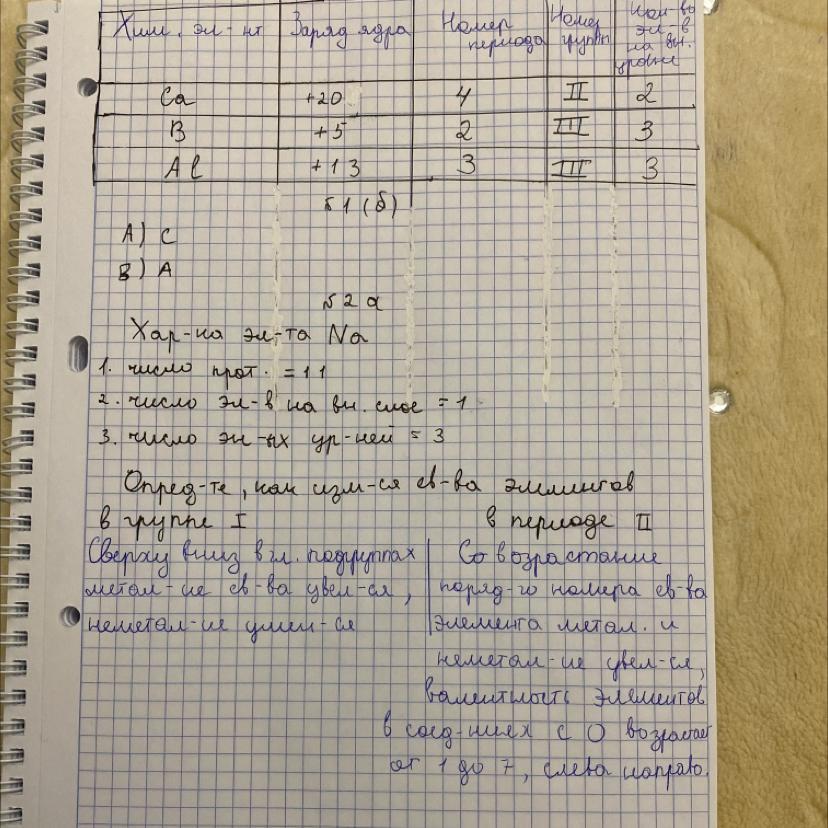 Хим. эл-нт Заряд ядра Номер периода Номер групп Кол-во эл-в на вн. уровне
Ca +20 4 II 2
B +5 2 III 3
Al +13 3 III 3
№1 (б)
A) C
B) A
№2 а
Хар-ка эл-та Na
1. число прот. = 11
2. число эл-в на вн. слое = 1
3. число эн-ых ур-ней = 3
Опред-те, как изм-ся св-ва элементов
в группе I в периоде II
Сверху вниз в гл. подгруппах
метал-ие св-ва увел-ся,
неметал-ие умен-ся
Со возрастание
поряд-го номера св-ва
элемента метал. и
неметал-ие увел-ся,
валентность элементов
в соед-ниях с O возрастает
от 1 до 7, слева направо.